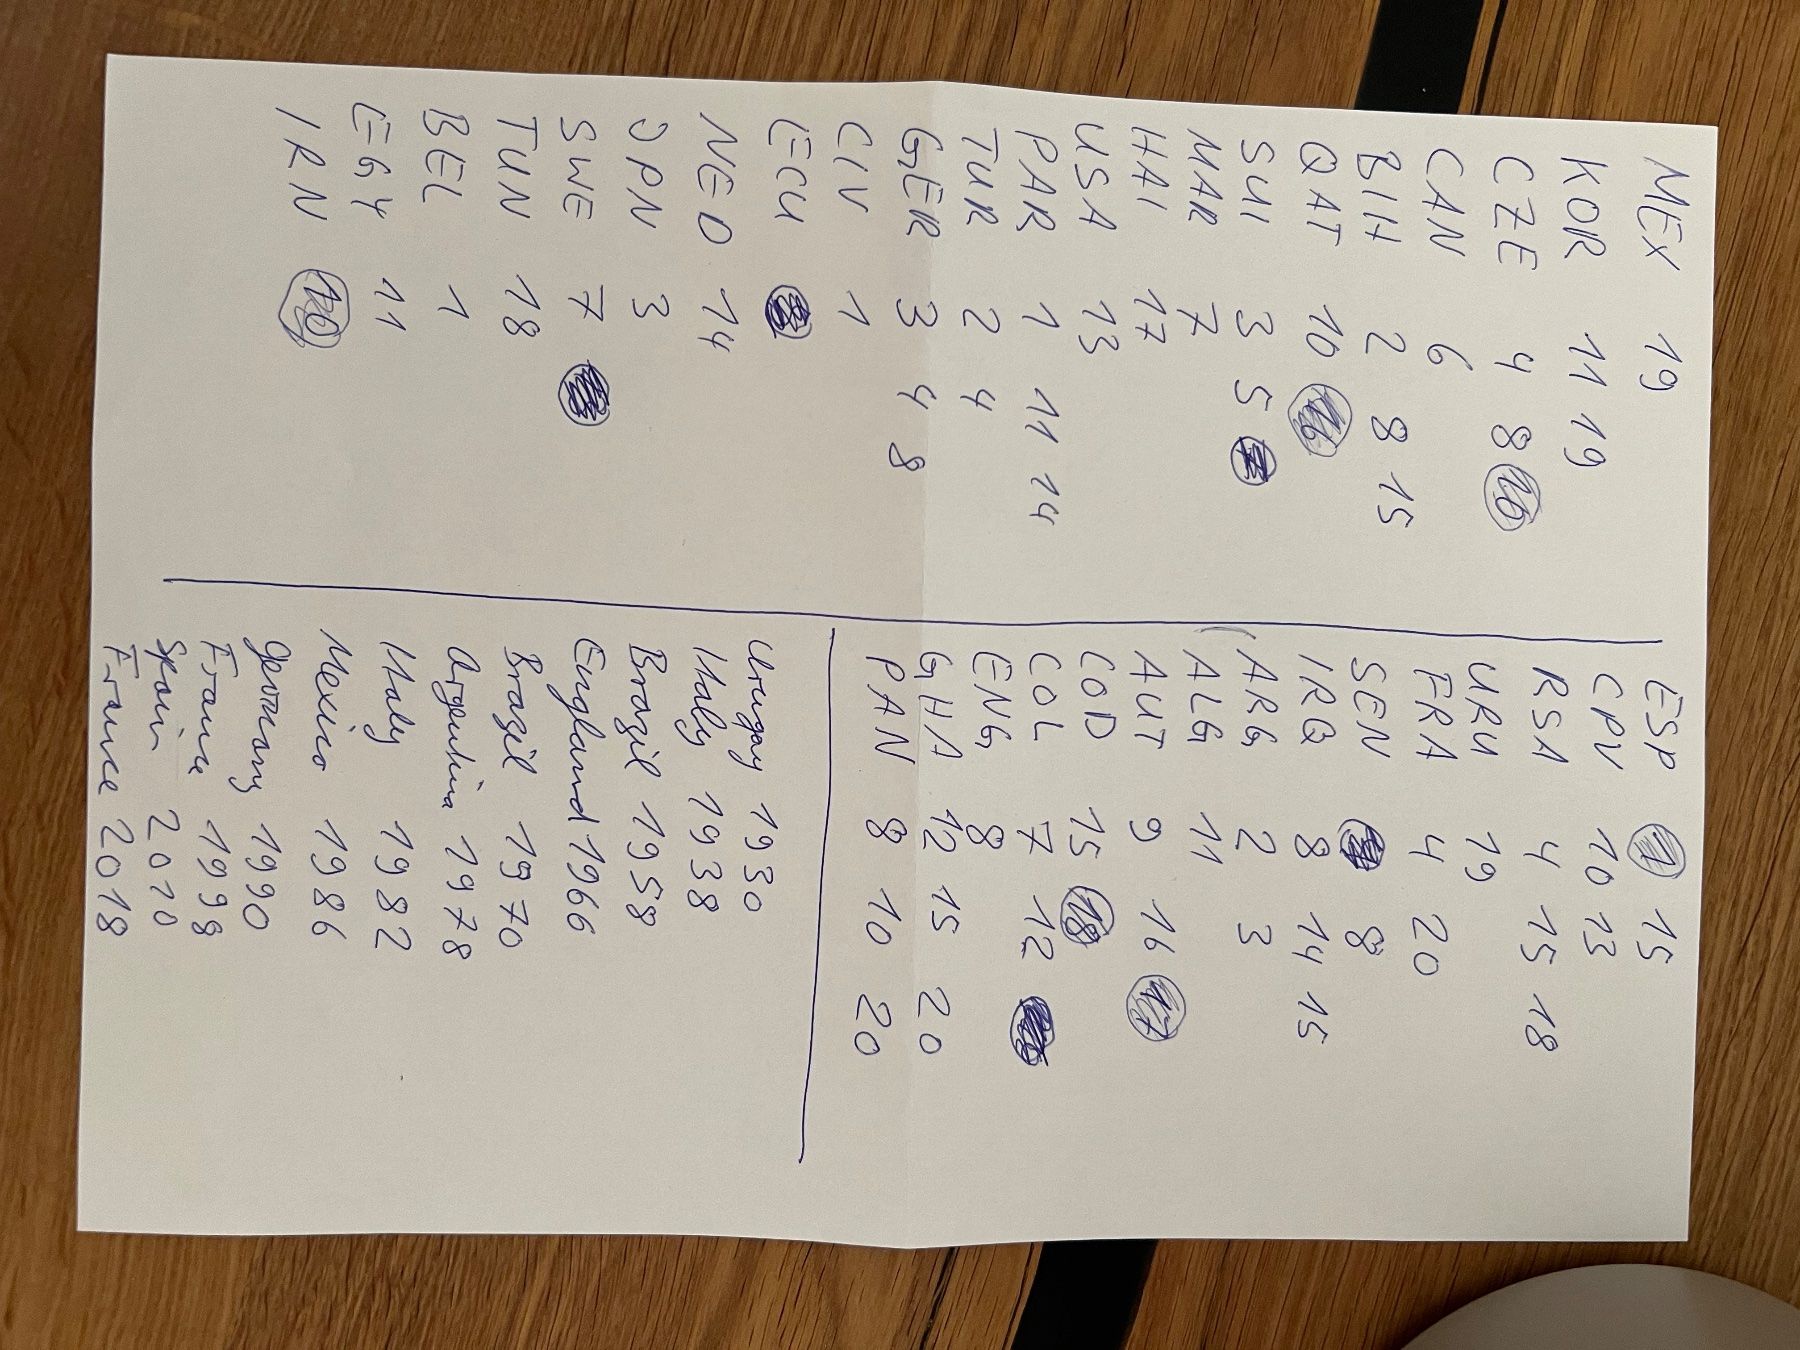 MEX 19
KOR 11 19
CZE 4 8
CAN 6
BIH 2 8 15
QAT 10
SUI 3 5
MAR 7
HAI 17
USA 13
PAR 1 11 14
TUR 2 4
GER 3 4 8
CIV 1
ECU
NED 14
JPN 3
SWE 7
TUN 18
BEL 1
EGY 11
IRN
ESP 15
CPV 10 13
RSA 4 15 18
URU 19
FRA 4 20
SEN 8
IRQ 8 14 15
ARG 2 3
ALG 11
AUT 9 16
COD 15
COL 7 12
ENG 8
GHA 12 15 20
PAN 8 10 20
Urugay 1930
Italy 1938
Brazil 1958
England 1966
Brazil 1970
Argentina 1978
Italy 1982
Mexico 1986
Germany 1990
France 1998
Spain 2010
France 2018